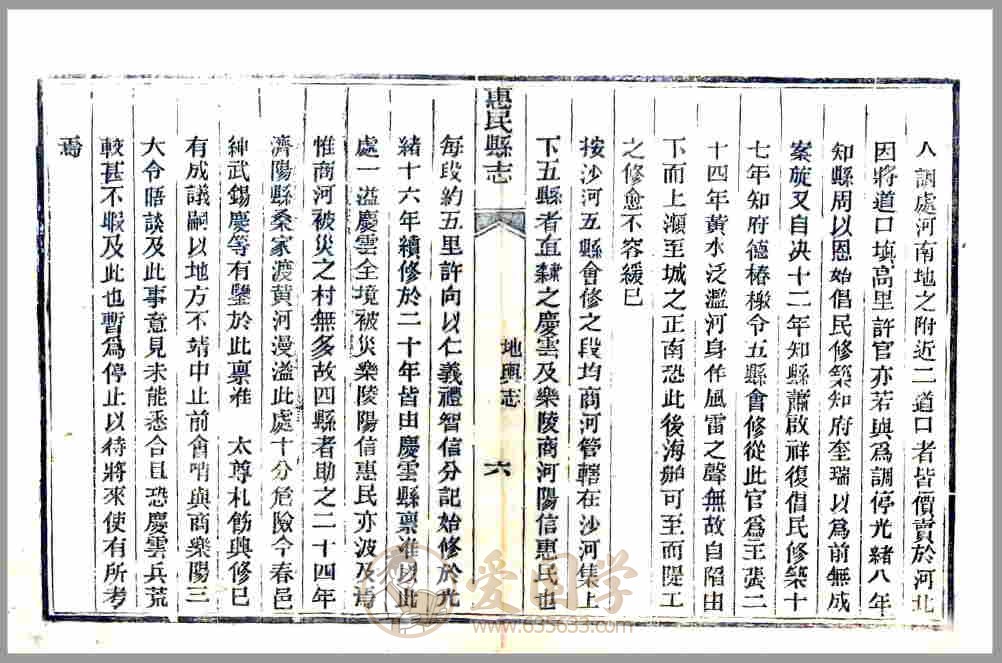 人調處河南地之附近二道口者皆價賣於河北
因將道口填高里許官亦若與為調停光緒八年
知縣周以恩始倡民修築知府奎瑞以為前無成
案旋又自決十二年知縣蕭啟祥復倡民修築十
七年知府德椿檄令五縣會修從此官為主張二
十四年黃水泛濫河身作風雷之聲無故自陷由
下而上瀕至城之正南恐此後海舶可至而隄工
之修愈不容緩已
按沙河五縣會修之段均商河管轄在沙河集上
下五縣者直隸之慶雲及樂陵商河陽信惠民也
惠民縣志
地輿志
六
每段約五里許向以仁義禮智信分記始修於光
緒十六年續修於二十年皆由慶雲縣稟准以此
處一溢慶雲全境被災樂陵陽信惠民亦波及焉
惟商河被災之村無多故四縣者助之二十四年
濟陽縣桑家渡黃河漫溢此處十分危險今春邑
紳武錫慶等有鑒於此稟准 太尊札飭興修已
有成議嗣以地方不靖中止前會哨與商樂陽三
大令晤談及此事意見未能悉合且恐慶雲兵荒
較甚不暇及此也暫為停止以待將來使有所考
焉
爱国学
www.635633.com